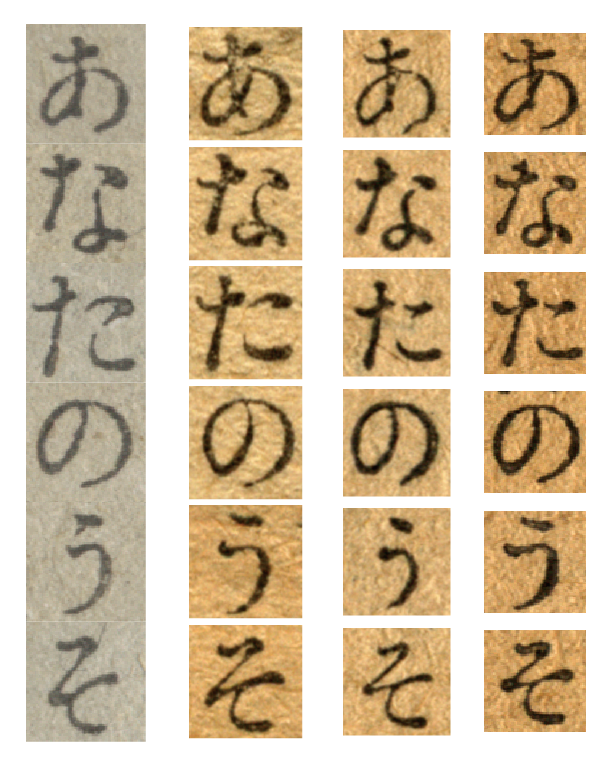 あなたのうそ
あなたのうそ
あなたのうそ
あなたのうそ